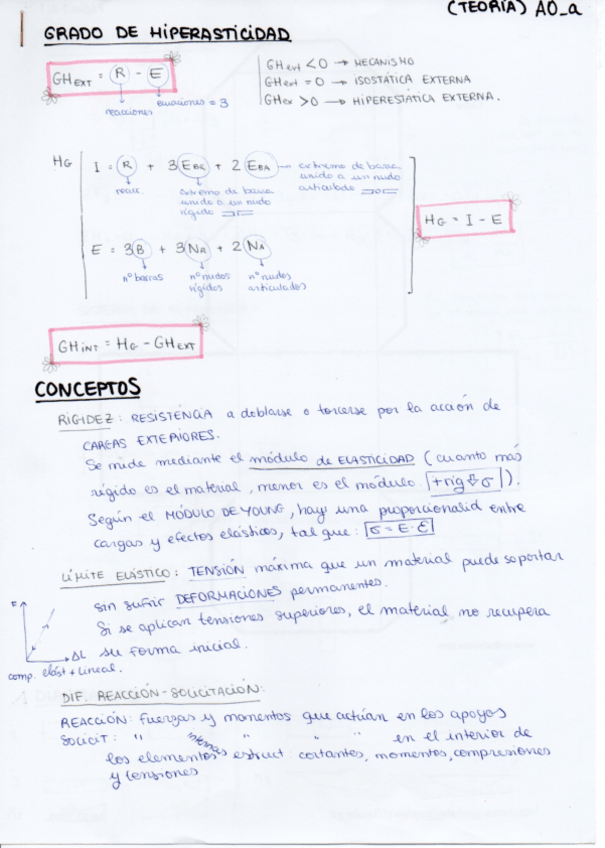 (TEORÍA) AO_a
GRADO DE HIPERASTICIDAD
GH EXT = R - E
reacciones
ecuaciones = 3
GH ext < 0 → MECANISMO
GH ext = 0 → ISOSTÁTICA EXTERNA
GH ex > 0 → HIPERESTÁTICA EXTERNA.
HG
I = R + 3 EBR + 2 EBA
reacc.
extremo de barra unido a un nudo rígido
extremo de barra unido a un nudo articulado
E = 3 B + 3 NR + 2 NA
nº barras
nº nudos rígidos
nº nudos articulados
HG = I - E
GH INT = HG - GH EXT
CONCEPTOS
RIGIDEZ: RESISTENCIA a doblarse o torcerse por la acción de
CARGAS EXTERIORES.
Se mide mediante el módulo de ELASTICIDAD (cuanto más
rígido es el material, menor es el módulo. +rig ⇩ σ).
Según el MÓDULO DE YOUNG, hay una proporcionalid entre
cargas y efectos elásticos, tal que: σ = E · Ɛ
LÍMITE ELÁSTICO: TENSIÓN máxima que un material puede soportar
sin sufrir DEFORMACIONES permanentes.
Si se aplican tensiones superiores, el material no recupera
su forma inicial.
F
ΔL
comp. elást + lineal.
DIF. REACCIÓN-SOLICITACIÓN:
REACCIÓN: fuerzas y momentos que actúan en los apoyos
SOLICIT: " internas " " " en el interior de
los elementos estruct cortantes, momentos, compresiones
y tensiones